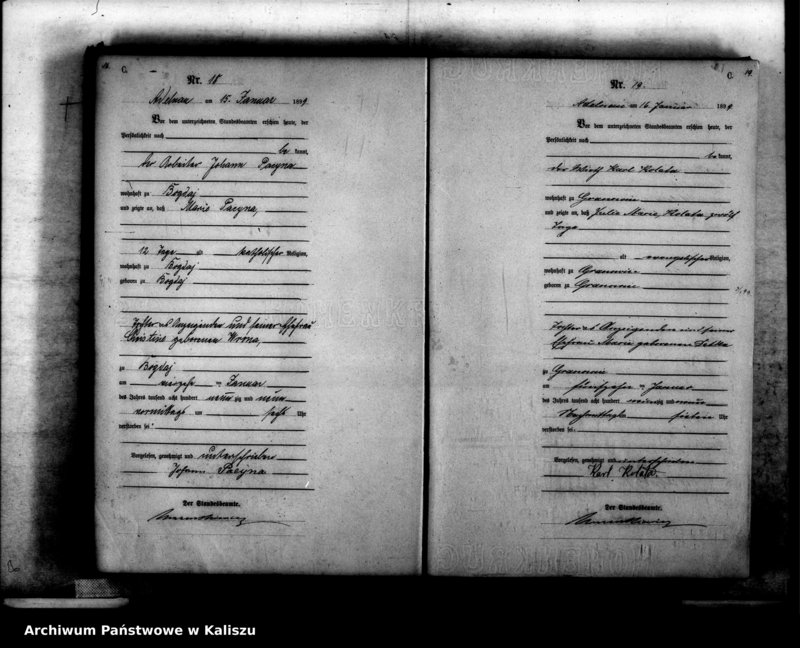 C.
Nr. 18
am 15. Januar 1899
Vor dem unterzeichneten Standesbeamten erschien heute, der
Persönlichkeit nach
be kannt,
der Arbeiter Johann Pacyna
wohnhaft zu Bogdaj
und zeigte an, daß Marie Pacyna,
12 Tage alt katholischer Religion,
wohnhaft zu Bogdaj
geboren zu Bogdaj
Tochter des Anzeigenden und seiner Ehefrau
Christine geborenen Wrona,
zu Bogdaj
am vierzehn ten Januar
des Jahres tausend acht hundert neun zig und neun
vormittags um sechs Uhr
verstorben sei.
Vorgelesen, genehmigt und unterschrieben
Johann Pacyna
Der Standesbeamte.
19.
C.
Nr. 19
am 16. Januar 1899
Vor dem unterzeichneten Standesbeamten erschien heute, der
Persönlichkeit nach
be kannt,
der Karl Kolata
wohnhaft zu Granowiec
und zeigte an, daß Julia Marie Kolata zwölf
Tage
alt evangelischer Religion,
wohnhaft zu Granowiec
geboren zu Granowiec
Tochter des Anzeigenden und seiner
Ehefrau Marie geborenen
zu Granowiec
am fünfzehn ten Januar
des Jahres tausend acht hundert neunzig und neun
Nachmittags um sieben Uhr
verstorben sei.
Vorgelesen, genehmigt und unterschrieben
Karl Kolata.
Der Standesbeamte.
Archiwum Państwowe w Kaliszu